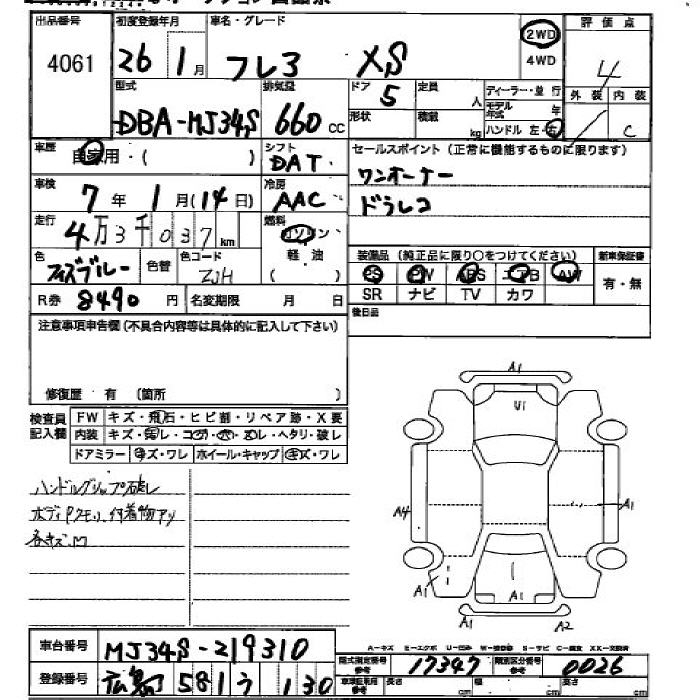 出品番号 初度登録年月 車名・グレード 2WD 評価点
4061 26 1月 フレア XS 4WD 4
型式 排気量 ドア 定員 ディーラー・並行 外装 内装
DBA-MJ34S 660cc 5 人 モデル年式 年 C
形状 積載 kg ハンドル 左・右
車歴 自家用・( ) シフト DAT セールスポイント (正常に機能するものに限ります)
車検 7年 1月(14日) 冷房 AAC ワンオーナー
走行 4万3千037km 燃料 ガソリン ドラレコ
色 ブルー 色替 色コード ZJH 軽油 ( 装備品 (純正品に限り○をつけてください) 新車保証書
PS PW ABS エアB AW 有・無
R券 8490円 名変期限 月 日 SR ナビ TV カワ
注意事項申告欄 (不具合内容等は具体的に記入して下さい) 後日品
修復歴 有 (箇所 )
検査員記入欄 FW キズ・飛石・ヒビ割・リペア跡・X要
内装 キズ・汚レ・コゲ・穴・スレ・ヘタリ・破レ
ドアミラー キズ・ワレ ホイール・キャップ キズ・ワレ
ハンドルグリップ破レ
ボディアクモリ、付着物アリ
各キズ、M
A1
U1
A4 A1
A1 A1
A1 A2
A-キズ E-エクボ U-凹み W-補修跡 S-サビ C-腐食 XX-交換済
車台番号 MJ34S-219310
型式指定番号 参考 17347 類別区分番号 参考 0026
登録番号 広島 581 う 130
車検証記載 参考 長さ cm 幅 cm 高さ cm